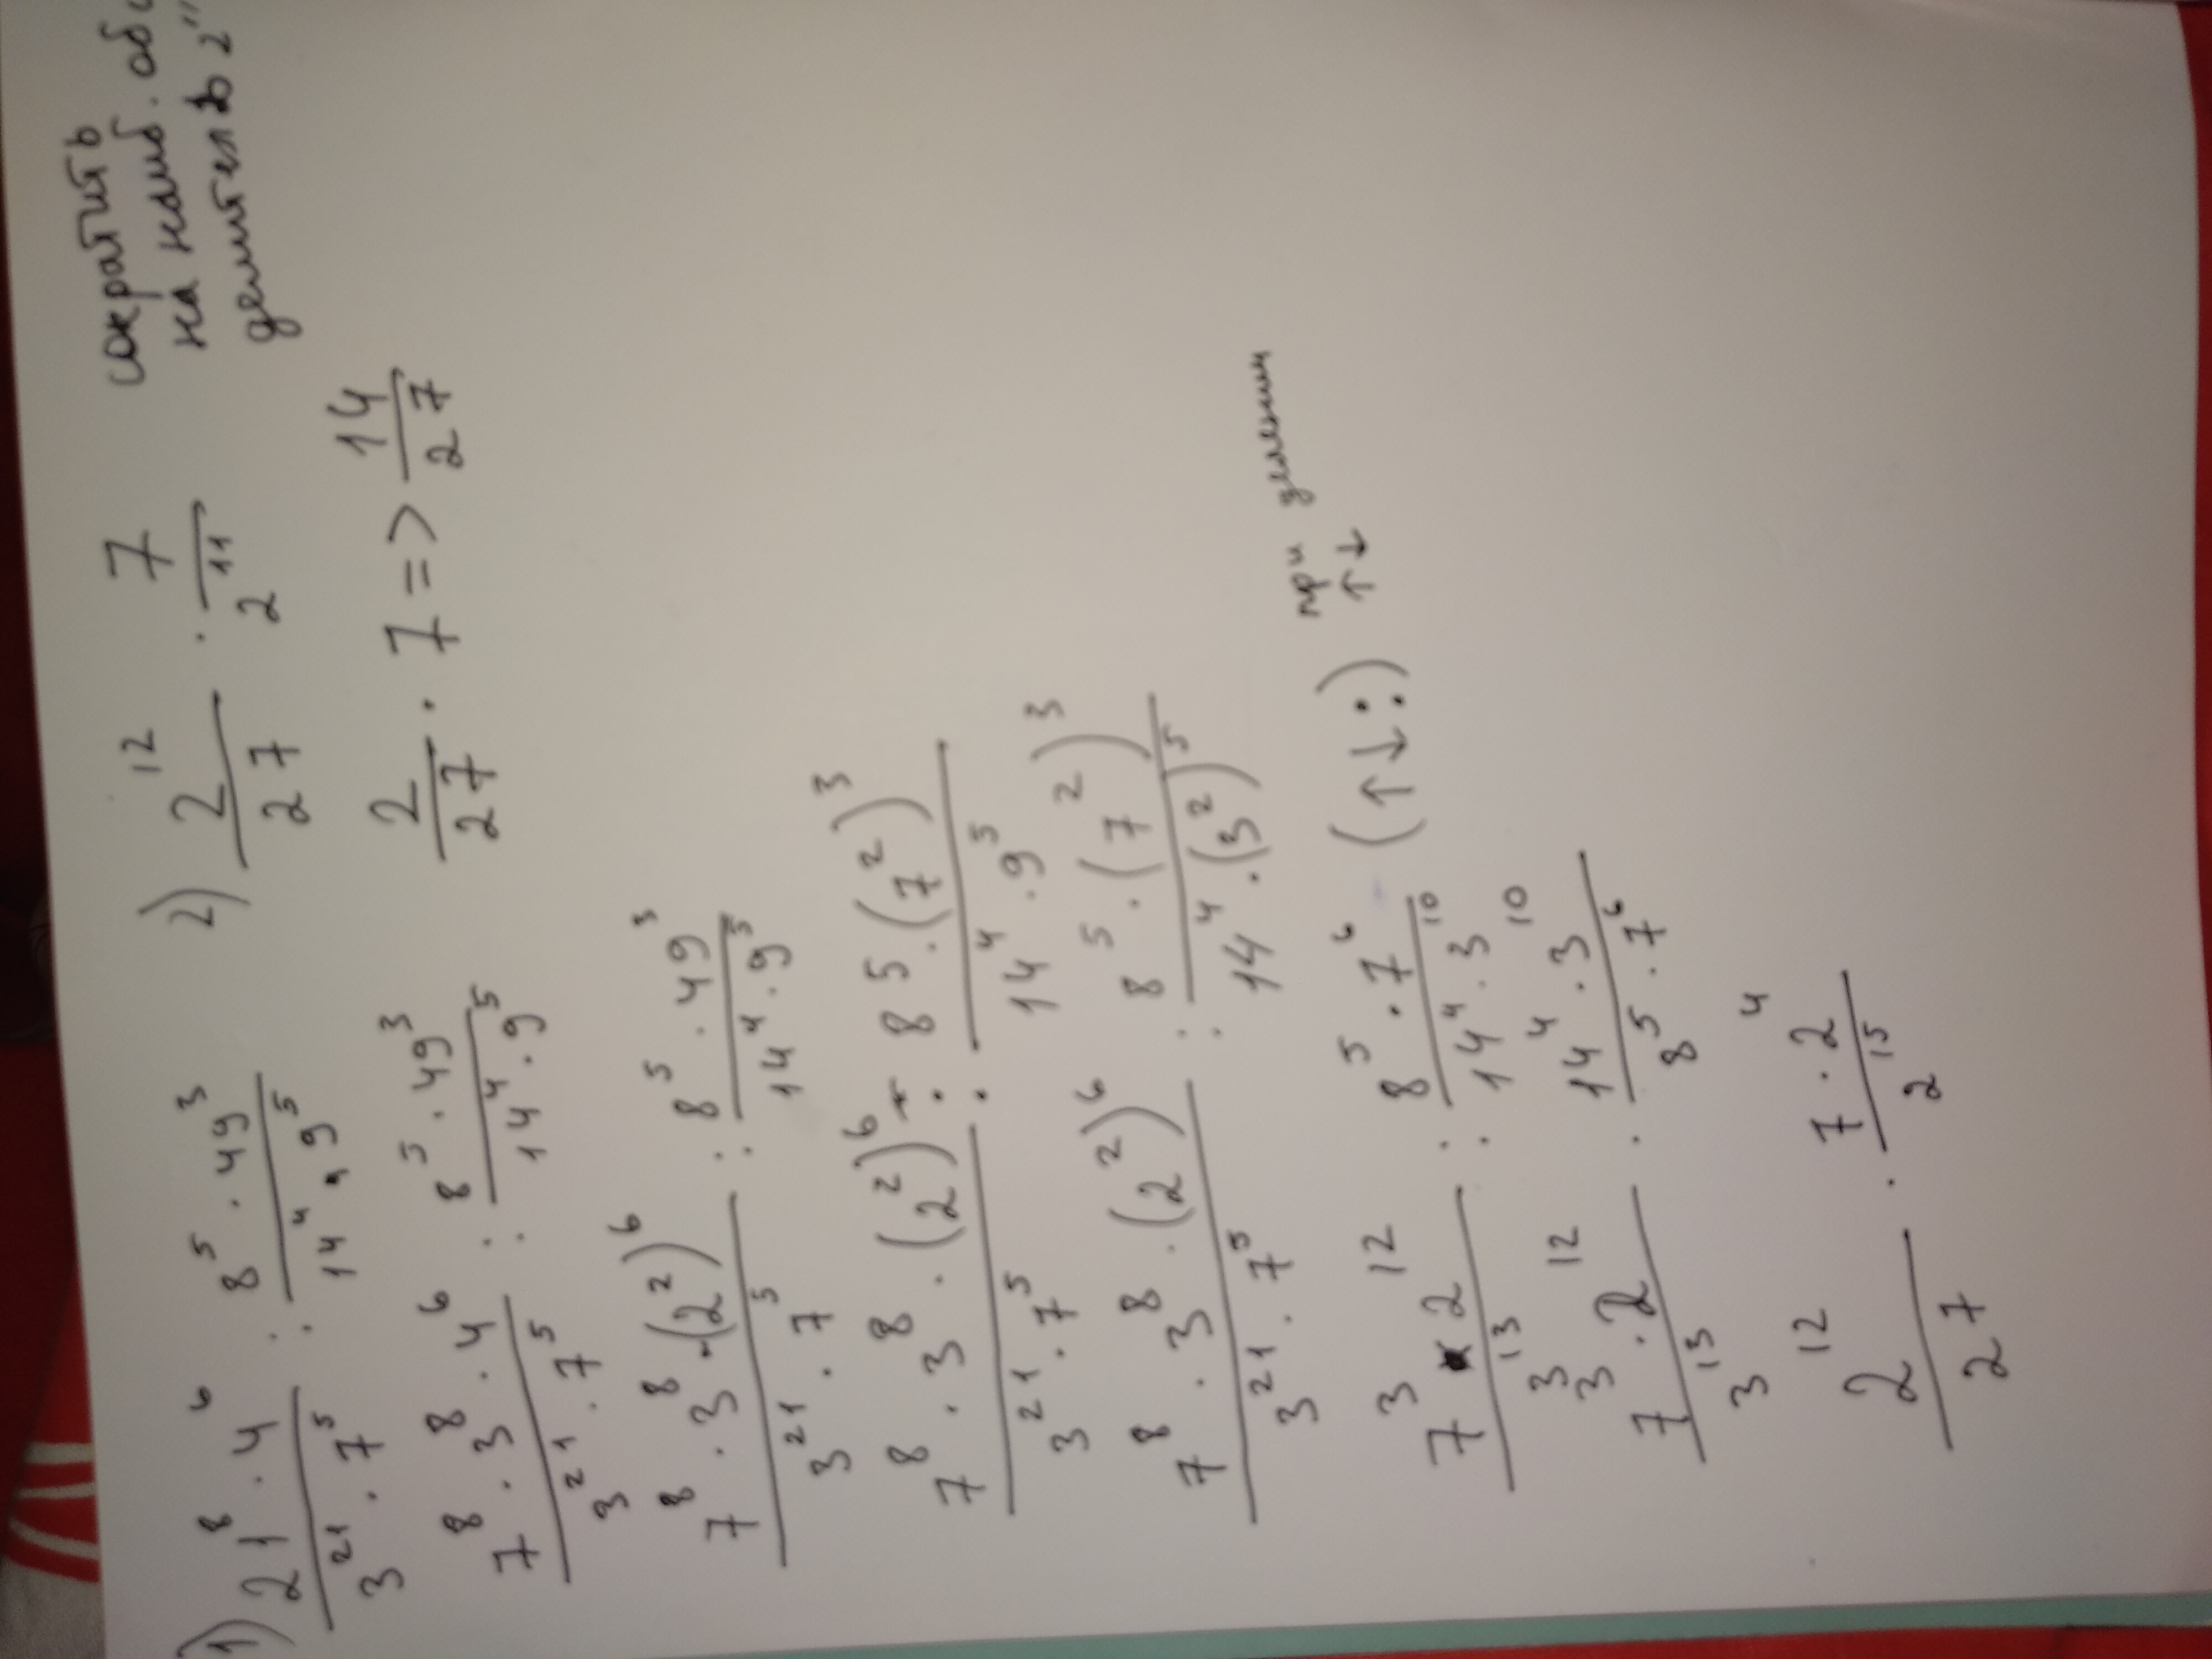 1) 21⁸ · 4⁶ / 3²¹ · 7⁵ : 8⁵ · 49³ / 14⁴ · 9⁵
7⁸ · 3⁸ · 4⁶ / 3²¹ · 7⁵ : 8⁵ · 49³ / 14⁴ · 9⁵
7⁸ · 3⁸ · (2²)⁶ / 3²¹ · 7⁵ : 8⁵ · 49³ / 14⁴ · 9⁵
7⁸ · 3⁸ · (2²)⁶ / 3²¹ · 7⁵ : 8⁵ · (7²)³ / 14⁴ · 9⁵
7⁸ · 3⁸ · (2²)⁶ / 3²¹ · 7⁵ : 8⁵ · (7²)³ / 14⁴ · (3²)⁵
7³ · 2¹² / 3¹³ : 8⁵ · 7⁶ / 14⁴ · 3¹⁰ (↑↓:) при делении ↑↓
7³ · 2¹² / 3¹³ · 14⁴ · 3¹⁰ / 8⁵ · 7⁶
2¹² / 27 · 7 · 2⁴ / 2¹⁵
2) 2¹² / 27 · 7 / 2¹¹
сократить
на наиб.
делитель 2¹¹
2 / 27 · 7 => 14 / 27